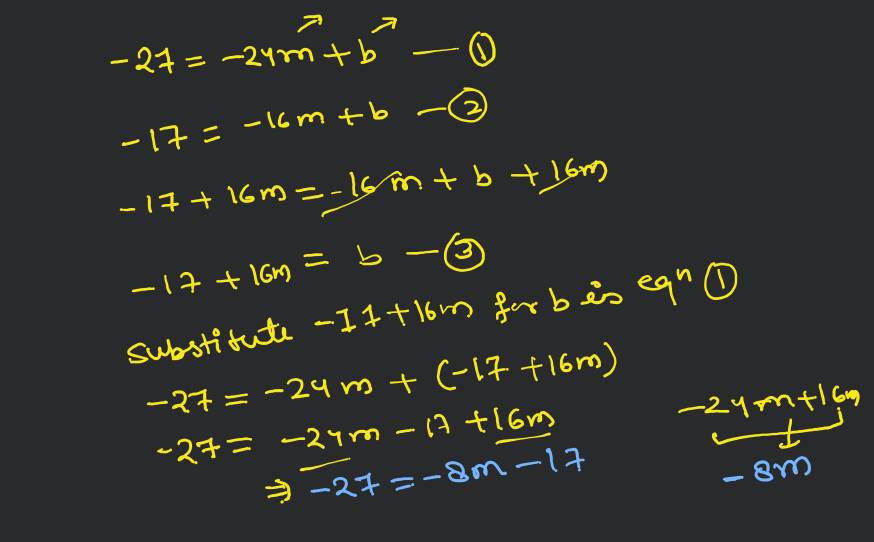 -27 = -24m + b — ①
-17 = -16m + b - ②
-17 + 16m = -16m + b + 16m
-17 + 16m = b — ③
Substitute -17+16m for b in eqn ①
-27 = -24m + (-17 + 16m)
-27 = -24m - 17 + 16m
⇒ -27 = -8m - 17
-24m + 16m
-8m